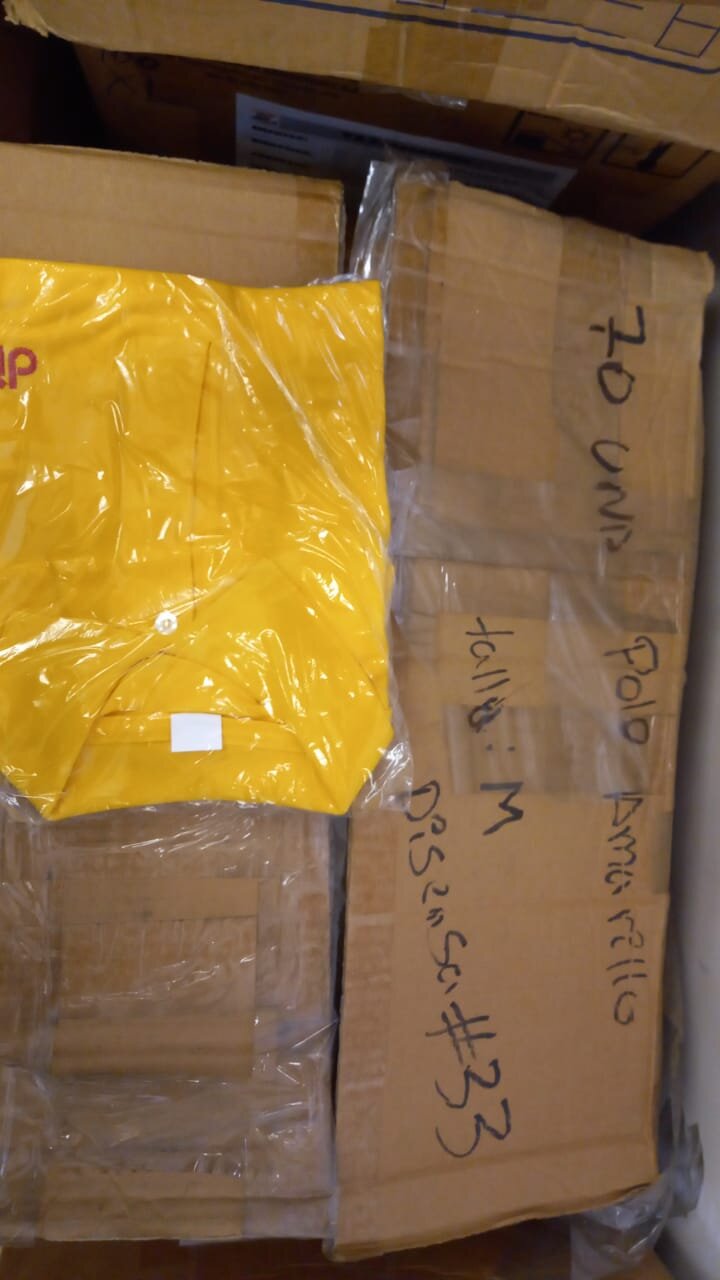 70 UND Polo Amarillo
talla: M
Disensa #33